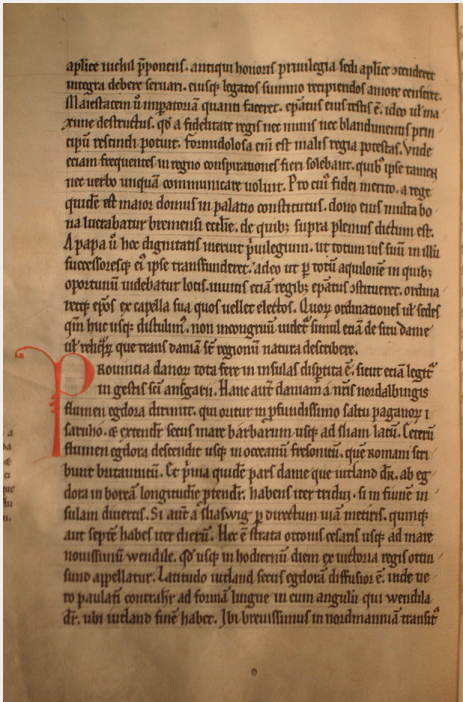 aplice nichil p̄ponens. antiqui honoris privilegia sedi aplice ↄtenderet
integra debere servari. eiusq; legatos summo recipiendos amore censeret.
Maiestatem ů imperatoriā quanti faceret. epatus eius testis ē. ideo ul ma
xime destructus. qd a fidelitate regis nec minis nec blandimentis prin
cipū rescindi potuit. formidolosa eni est malis regia potestas. Vnde
eciam frequentes in regno conspirationes fieri solebant. quib; ipse tamen
nec verbo unquā communicare voluit. Pro cui fidei merito. a rege
quide est maior domus in palatio constitutus. dono eius multa bo
na lucrabatur bremensi ecclie. de quib; supra plenius dictum est.
A papa ů hoc dignitatis meruit pvilegium. ut totum ius suū in illū
successoresq; ei ipse transfunderet. adeo ut p totū aquilonē in quib;
oportunū videbatur locis. invitis eciā regib; epatus ↄstitueret. ordina
retq; epos ex capella sua quos vellet electos. Quor ordinationes ul sedes
qin huc usq; distulim. non incongruū videt simul etiā de situ danie
ul reliqr que trans daniā st regionū natura describere.
PRovintia danor tota fere in insulas disptita ē. sicut eciam legit
in gestis sci ansgarii. Hanc aut daniam a nris nordalbingis
flumen egdora dirimit. qui oritur in pfundissimo saltu paganor i
sarnho. & extendit secus mare barbarum usq; ad sliam lacū. Ceterū
flumen egdora descendit usq; in oceanū fresonicū. que romani scri
bunt britannicū. Et pma quide pars danie que iutland dr. ab eg
dora in boreā longitudie ptendit. habens iter tridui. si in fiunē in
sulam divertis. Si aut a sliaswig p directum viā metiris. quinq;
aut septē habes iter dierū. Hec ē strata ottonis cesaris usq; ad mare
novissimū wendile. qd usq; in hodiernū diem ex victoria regis ottin
sund appellatur. Latitudo iutland secus egdorā diffusior ē. inde ve
ro paulati contrahit ad formā lingue in eum angulū qui wendila
dr. ubi iutland finē habet. Ibi brevissimus in nordmanniā transit